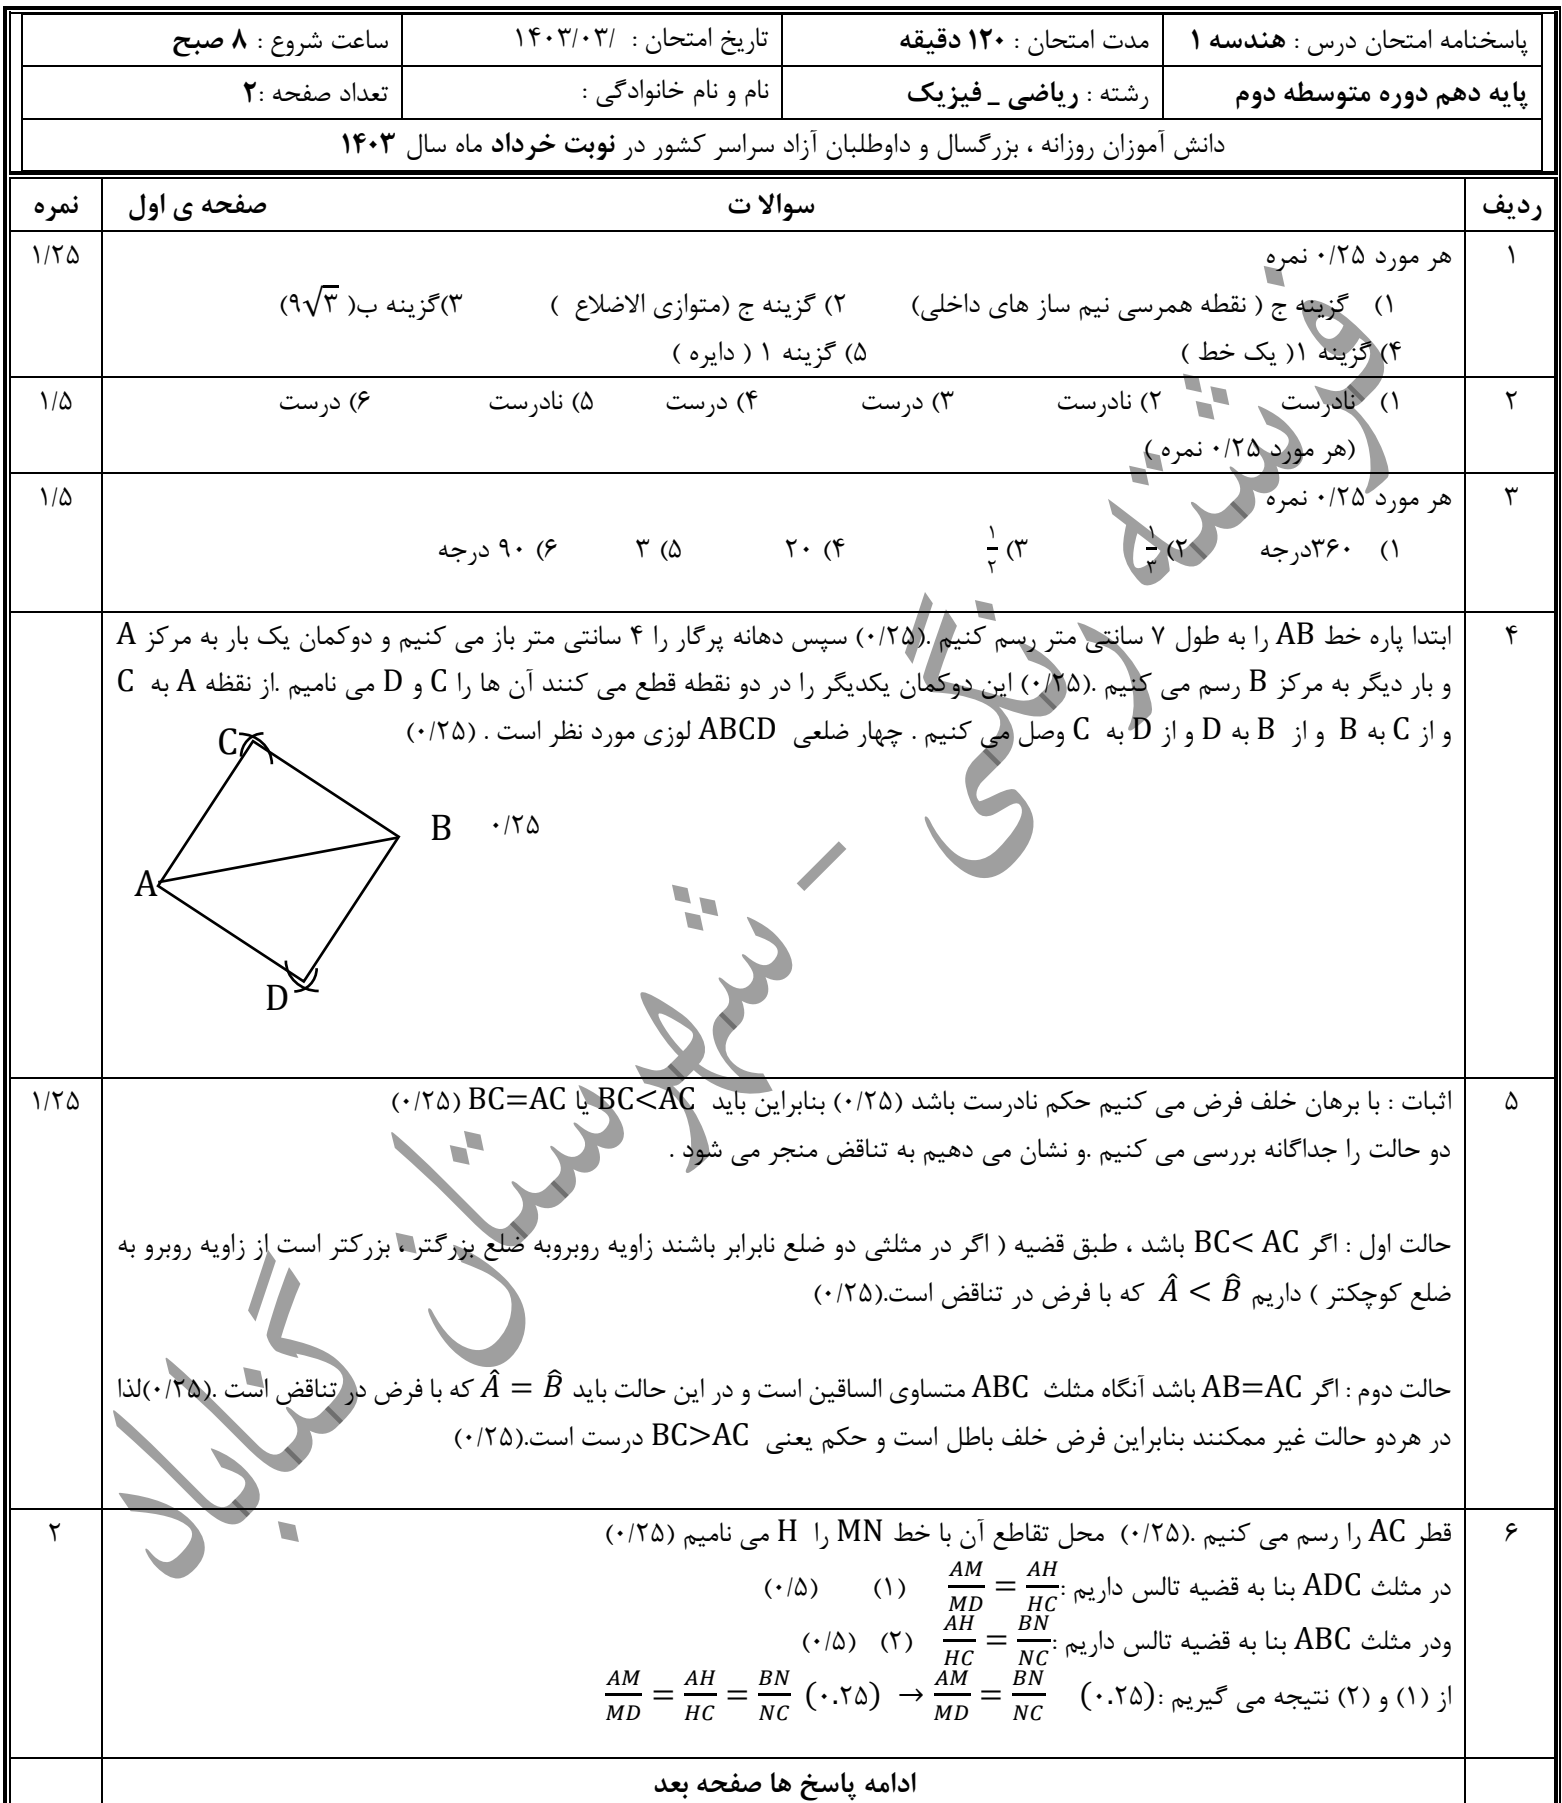 پاسخنامه امتحان درس : هندسه ۱ مدت امتحان : ۱۲۰ دقیقه تاریخ امتحان : /۱۴۰۳/۰۳ ساعت شروع : ۸ صبح
پایه دهم دوره متوسطه دوم رشته : ریاضی _ فیزیک نام و نام خانوادگی : تعداد صفحه :۲
دانش آموزان روزانه ، بزرگسال و داوطلبان آزاد سراسر کشور در نوبت خرداد ماه سال ۱۴۰۳
ردیف سوالا ت صفحه ی اول نمره
۱ هر مورد ۰/۲۵ نمره ۱/۲۵
۱) گزینه ج ( نقطه همرسی نیم ساز های داخلی) ۲) گزینه ج (متوازی الاضلاع ) ۳)گزینه ب( ۹√۳)
۴) گزینه ۱( یک خط ) ۵) گزینه ۱ ( دایره )
۲ ۱) نادرست ۲) نادرست ۳) درست ۴) درست ۵) نادرست ۶) درست ۱/۵
(هر مورد ۰/۲۵ نمره )
۳ هر مورد ۰/۲۵ نمره ۱/۵
۱) ۳۶۰درجه ۲) ۱/۳ ۳) ۱/۲ ۴) ۲۰ ۵) ۳ ۶) ۹۰ درجه
۴ ابتدا پاره خط AB را به طول ۷ سانتی متر رسم کنیم .(۰/۲۵) سپس دهانه پرگار را ۴ سانتی متر باز می کنیم و دوکمان یک بار به مرکز A
و بار دیگر به مرکز B رسم می کنیم .(۰/۲۵) این دوکمان یکدیگر را در دو نقطه قطع می کنند آن ها را C و D می نامیم .از نقظه A به C
و از C به B و از B به D و از D به C وصل می کنیم . چهار ضلعی ABCD لوزی مورد نظر است . (۰/۲۵)
C
B ۰/۲۵
A
D
۵ اثبات : با برهان خلف فرض می کنیم حکم نادرست باشد (۰/۲۵) بنابراین باید BC<AC یا BC=AC (۰/۲۵) ۱/۲۵
دو حالت را جداگانه بررسی می کنیم .و نشان می دهیم به تناقض منجر می شود .
حالت اول : اگر BC< AC باشد ، طبق قضیه ( اگر در مثلثی دو ضلع نابرابر باشند زاویه روبروبه ضلع بزرگتر ، بزرکتر است از زاویه روبرو به
ضلع کوچکتر ) داریم Â < B̂ که با فرض در تناقض است.(۰/۲۵)
حالت دوم : اگر AB=AC باشد آنگاه مثلث ABC متساوی الساقین است و در این حالت باید Â = B̂ که با فرض در تناقض است .(۰/۲۵)لذا
در هردو حالت غیر ممکنند بنابراین فرض خلف باطل است و حکم یعنی BC>AC درست است.(۰/۲۵)
۶ قطر AC را رسم می کنیم .(۰/۲۵) محل تقاطع آن با خط MN را H می نامیم (۰/۲۵) ۲
در مثلث ADC بنا به قضیه تالس داریم: AM/MD = AH/HC (۱) (۰/۵)
ودر مثلث ABC بنا به قضیه تالس داریم: AH/HC = BN/NC (۲) (۰/۵)
از (۱) و (۲) نتیجه می گیریم: AM/MD = AH/HC = BN/NC (۰.۲۵) → AM/MD = BN/NC (۰.۲۵)
ادامه پاسخ ها صفحه بعد
فرشته رنگی - شهرستان گناباد